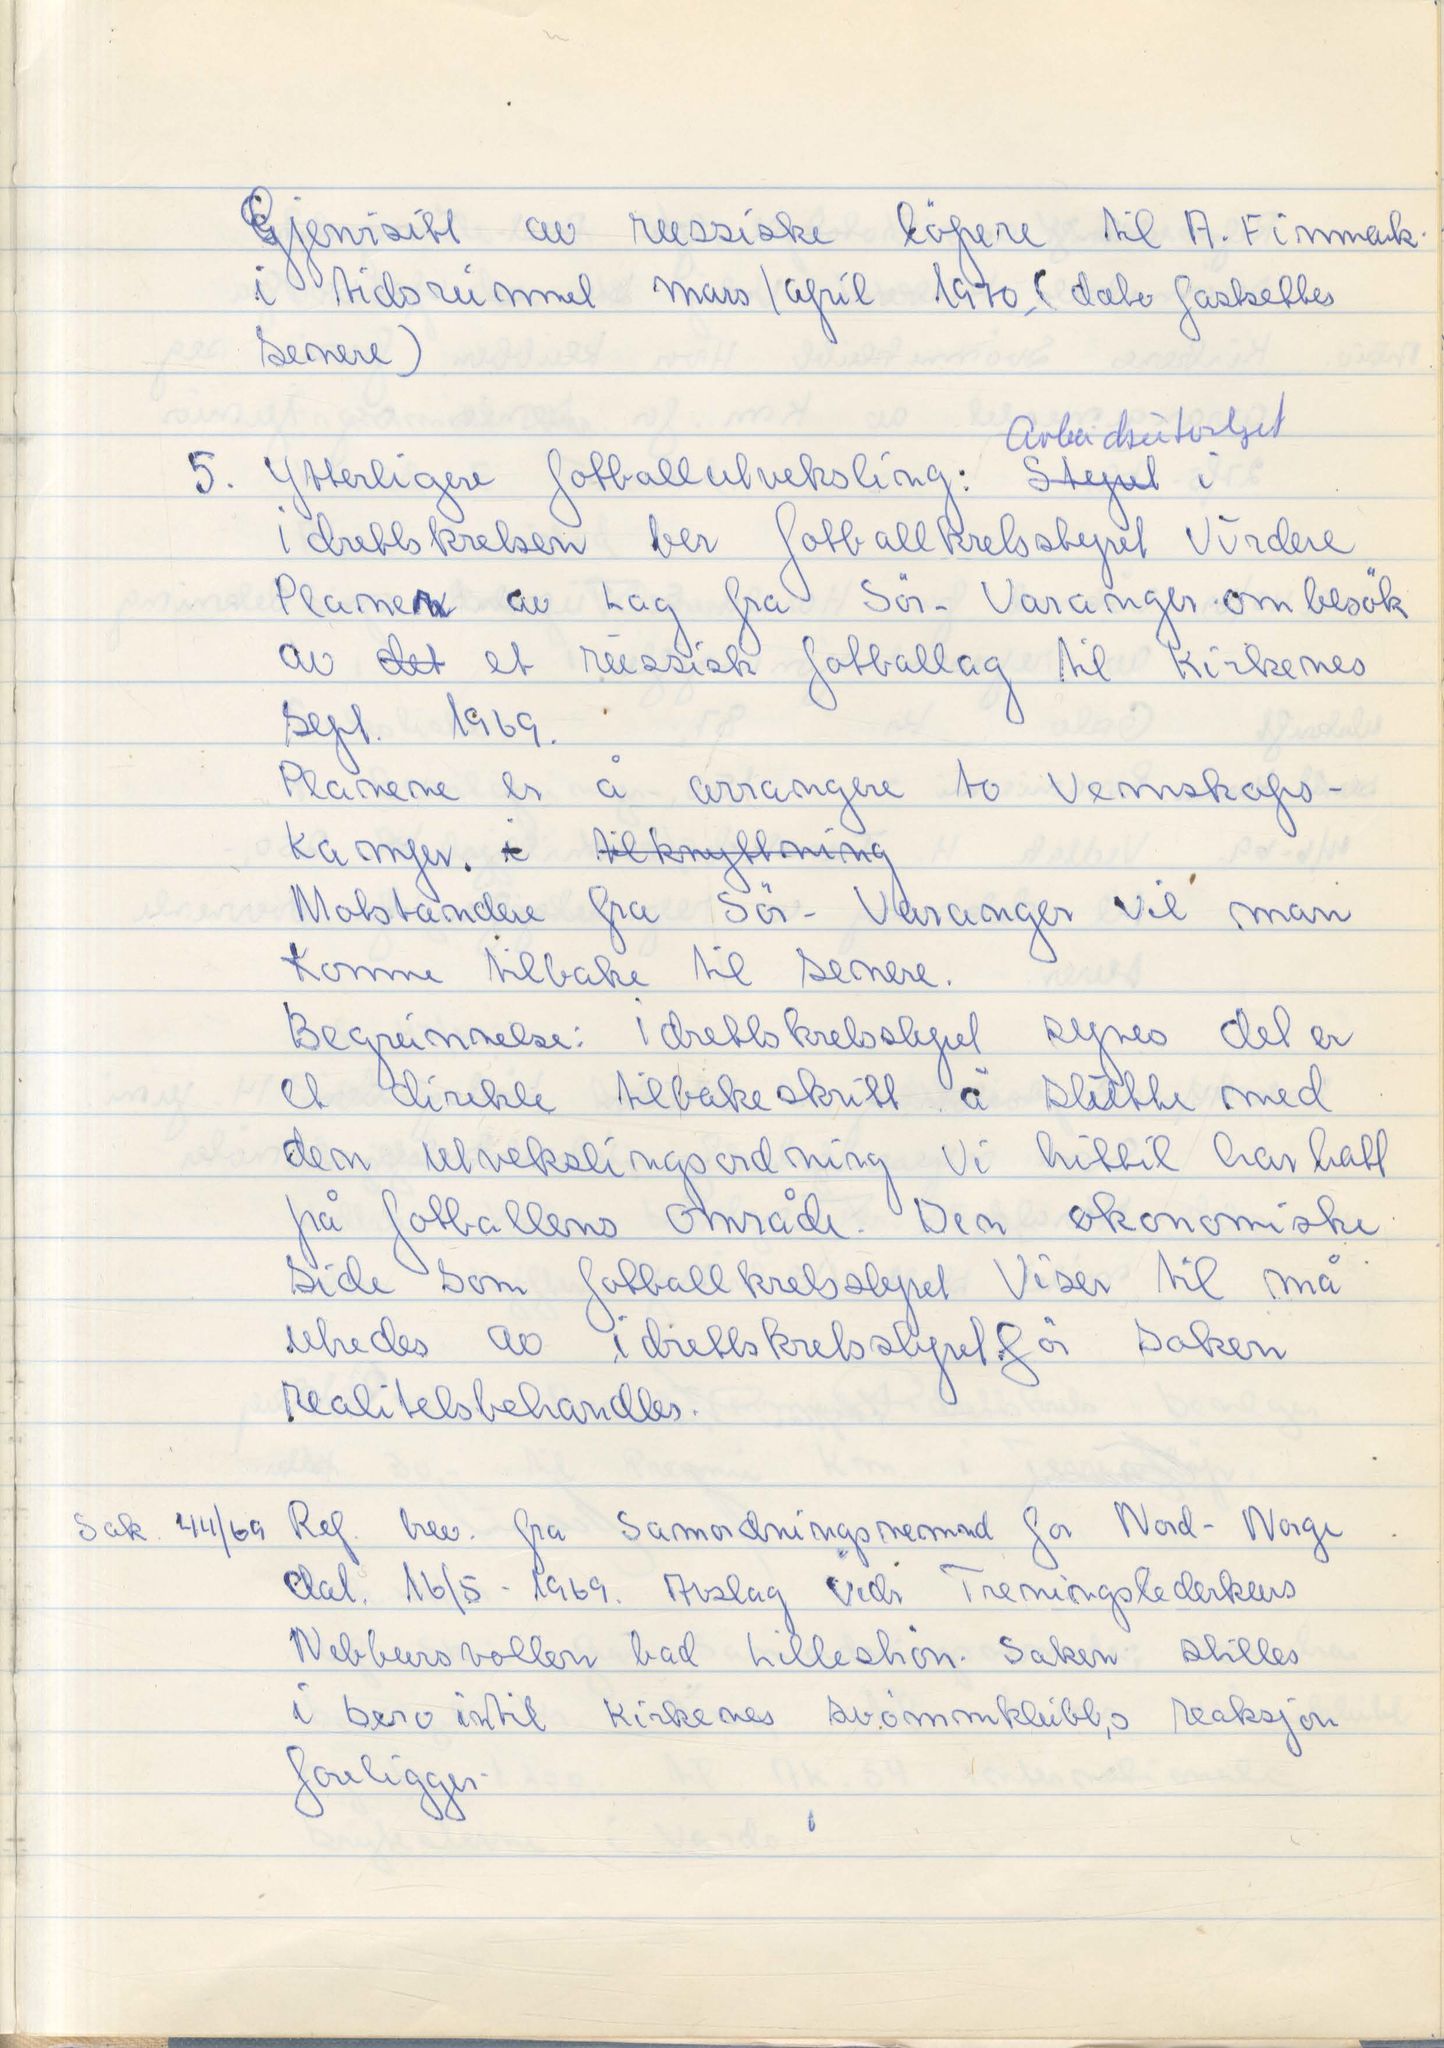 Gjenvisitt av russiske löpere til A. Finnmark.
i tidsrümmet mars/april 1970, (dato fastsettes
senere)
Arbeidsütvalget
5. Ytterligere fotballutveksling: Styret i
idrettskretsen ber fotballkretsstyret vürdere
Planen av Lag fra Sör- Varanger om besök
av det et rüssisk fotballag til Kirkenes
sept. 1969.
Planene er å arrangere to Vennskaps-
Kamper. i tilknyttning
Motstandere fra Sör- Varanger vil man
komme tilbake til senere.
Begrünnelse: idrettskretsstyret synes det er
et direkte tilbakeskritt å slütte med
den utvekslingsordning vi hittil har hatt
på fotballens område. Den økonomiske
side som fotballkretsstyret viser til må
utredes av idrettskretsstyret för saken
realitetsbehandles.
Sak. 44/69 Ref. brev. fra Samordningsnemnd for Nord- Norge
dat. 16/5 - 1969. Avslag vedr Treningslederkurs
Nebbursvollen bad Lilleström. Saken stilles
i bero intil Kirkenes svömmklübb,s reaksjon
foreligger.